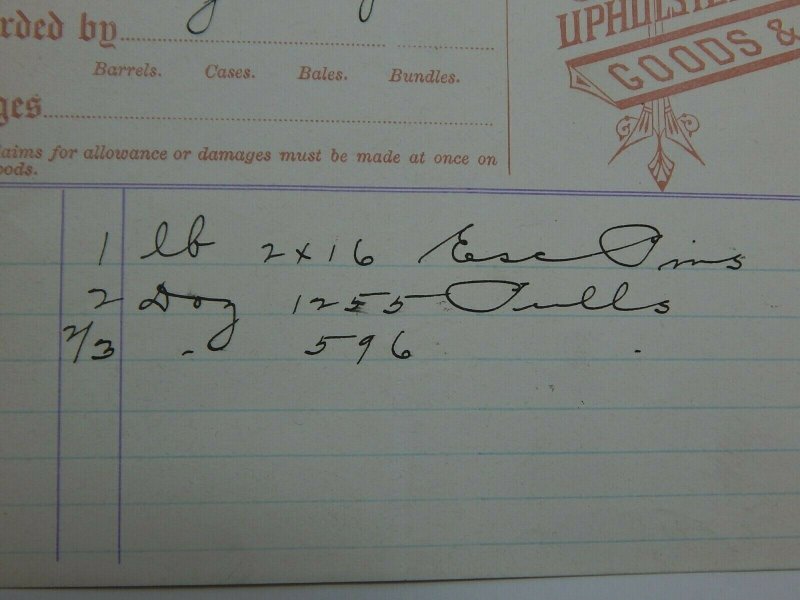 rded by
UPHOLSTE
GOODS &
Barrels. Cases. Bales. Bundles.
ges
laims for allowance or damages must be made at once on
oods.
1 lb 2 x 16 Esc Pins
2 Doz 1255 Pulls
2/3 " 596 "